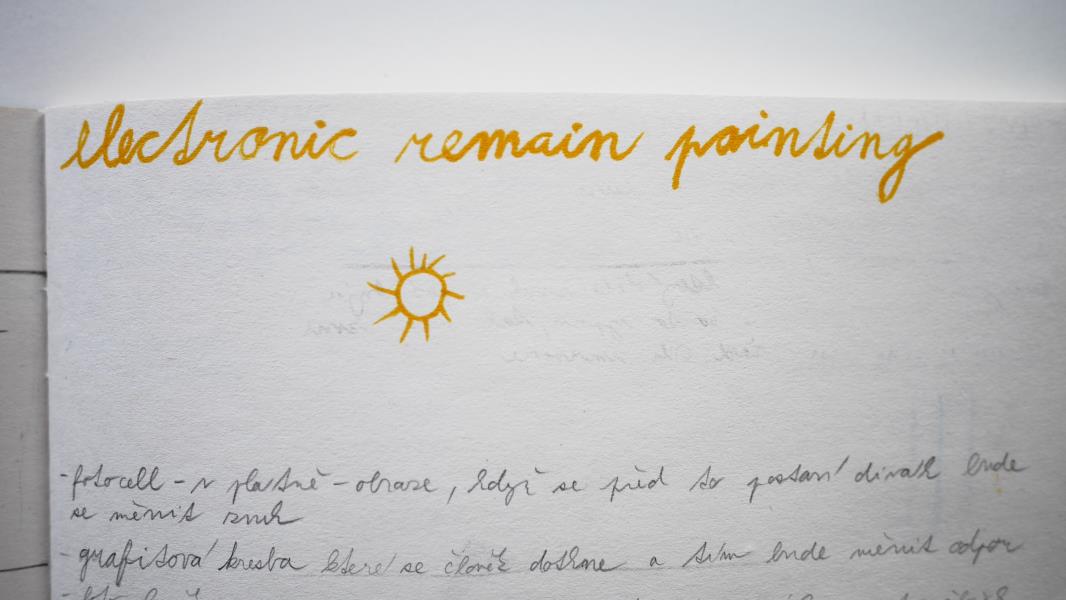 electronic remain painting
-fotocell - v plátně - obraze, když se před to postaví divák bude
se měnit zvuk
- grafitová kresba které se člověk dotkne a tím bude měnit odpor